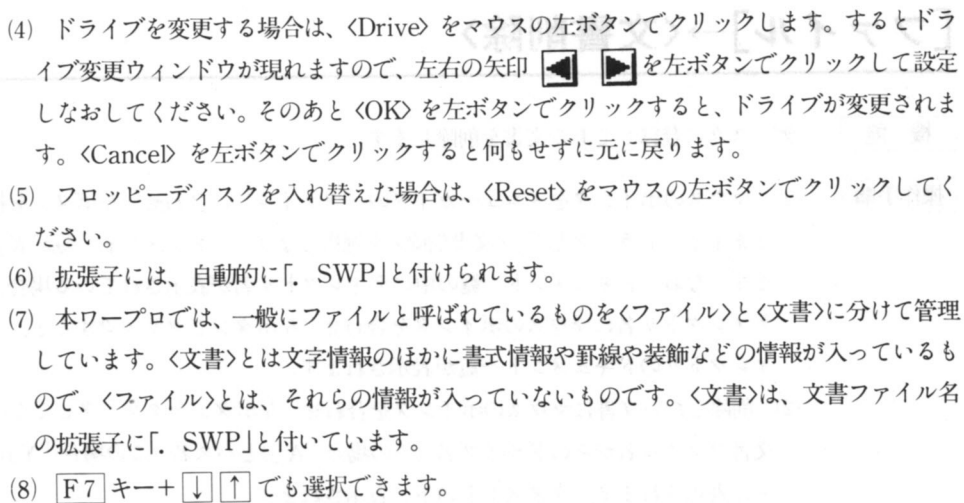 (4) ドライブを変更する場合は、〈Drive〉をマウスの左ボタンでクリックします。するとドラ
イブ変更ウィンドウが現れますので、左右の矢印 ◀ ▶ を左ボタンでクリックして設定
しなおしてください。そのあと〈OK〉を左ボタンでクリックすると、ドライブが変更されま
す。〈Cancel〉を左ボタンでクリックすると何もせずに元に戻ります。
(5) フロッピーディスクを入れ替えた場合は、〈Reset〉をマウスの左ボタンでクリックしてく
ださい。
(6) 拡張子には、自動的に「．SWP」と付けられます。
(7) 本ワープロでは、一般にファイルと呼ばれているものを〈ファイル〉と〈文書〉に分けて管理
しています。〈文書〉とは文字情報のほかに書式情報や罫線や装飾などの情報が入っているも
ので、〈ファイル〉とは、それらの情報が入っていないものです。〈文書〉は、文書ファイル名
の拡張子に「．SWP」と付いています。
(8) F7キー＋↓↑でも選択できます。